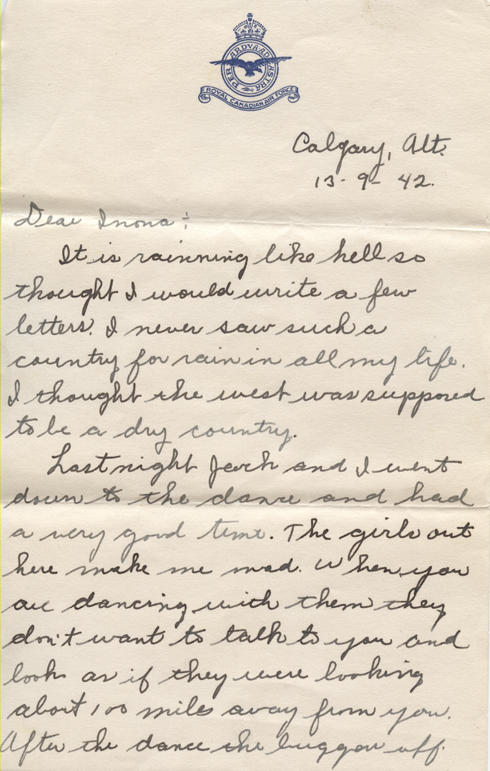 PER ARDVA AD ASTRA
ROYAL CANADIAN AIR FORCE
Calgary, Alt.
13-9-42.
Dear Inona:
It is rainning like hell so
thought I would write a few
letters. I never saw such a
country for rain in all my life.
I thought the west was supposed
to be a dry country.
Last night Jack and I went
down to the dance and had
a very good time. The girls out
here make me mad. When you
are dancing with them they
don't want to talk to you and
look as if they were looking
about 100 miles away from you.
After the dance she buggar off.